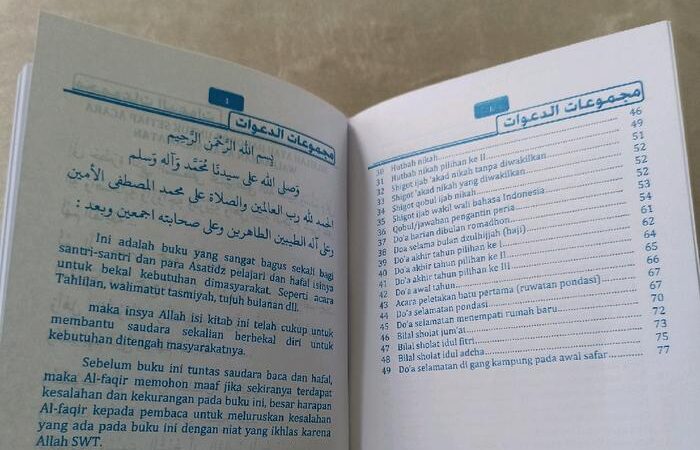 1
مجموعات الدعوات
بِسْمِ اللهِ الرَّحْمٰنِ الرَّحِيْمِ
وَصَلَّى اللهُ عَلَى سَيِّدِنَا مُحَمَّدٍ وَآلِهِ وَسَلَّمَ
الحمد لله رب العالمين والصلاة على محمد المصطفى الأمين
وعلى آله الطيبين الطاهرين وعلى صحابته اجمعين وبعد :
Ini adalah buku yang sangat bagus sekali bagi
santri-santri dan para Asatidz pelajari dan hafal isinya
untuk bekal kebutuhan dimasyarakat. Seperti acara
Tahlilan, walimatut tasmiyah, tujuh bulanan dll.
maka insya Allah isi kitab ini telah cukup untuk
membantu saudara sekalian berbekal diri untuk
kebutuhan ditengah masyarakatnya.
Sebelum buku ini tuntas saudara baca dan hafal,
maka Al-faqir memohon maaf jika sekiranya terdapat
kesalahan dan kekurangan pada buku ini, besar harapan
Al-faqir kepada pembaca untuk meluruskan kesalahan
yang ada pada buku ini dengan niat yang ikhlas karena
Allah SWT.
مجموعات الدعوات
30 Hutbah nikah 46
31 Hutbah nikah pilihan ke II 49
32 Shigot ijab 'akad nikah tanpa diwakilkan 51
33 Shigot 'akad nikah yang diwakilkan 52
34 Shigot qobul ijab nikah 52
35 Shigot ijab wakil wali bahasa Indonesia 52
36 Qobul/jawaban pengantin peria 52
37 Do'a harian dibulan romadhon 54
38 Doa selama bulan dzulhijjah (haji) 61
39 Do'a akhir tahun pilihan ke I 62
40 Do'a akhir tahun pilihan ke II 64
41 Do'a akhir tahun pilihan ke III 65
42 Do'a awal tahun 66
43 Acara peletakan batu pertama (ruwatan pondasi) 67
44 Do'a selamatan pondasi 67
45 Do'a selamatan menempati rumah baru 70
46 Bilal sholat jum'at 72
47 Bilal sholat idul fitri 73
48 Bilal sholat idul adcha 75
49 Do'a selamatan di gang kampung pada awal safar 77